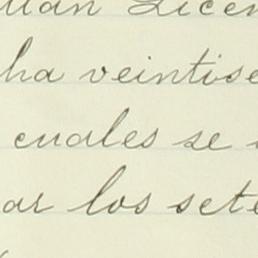 uan Licen
ha veintise
cuales se
ar los sete